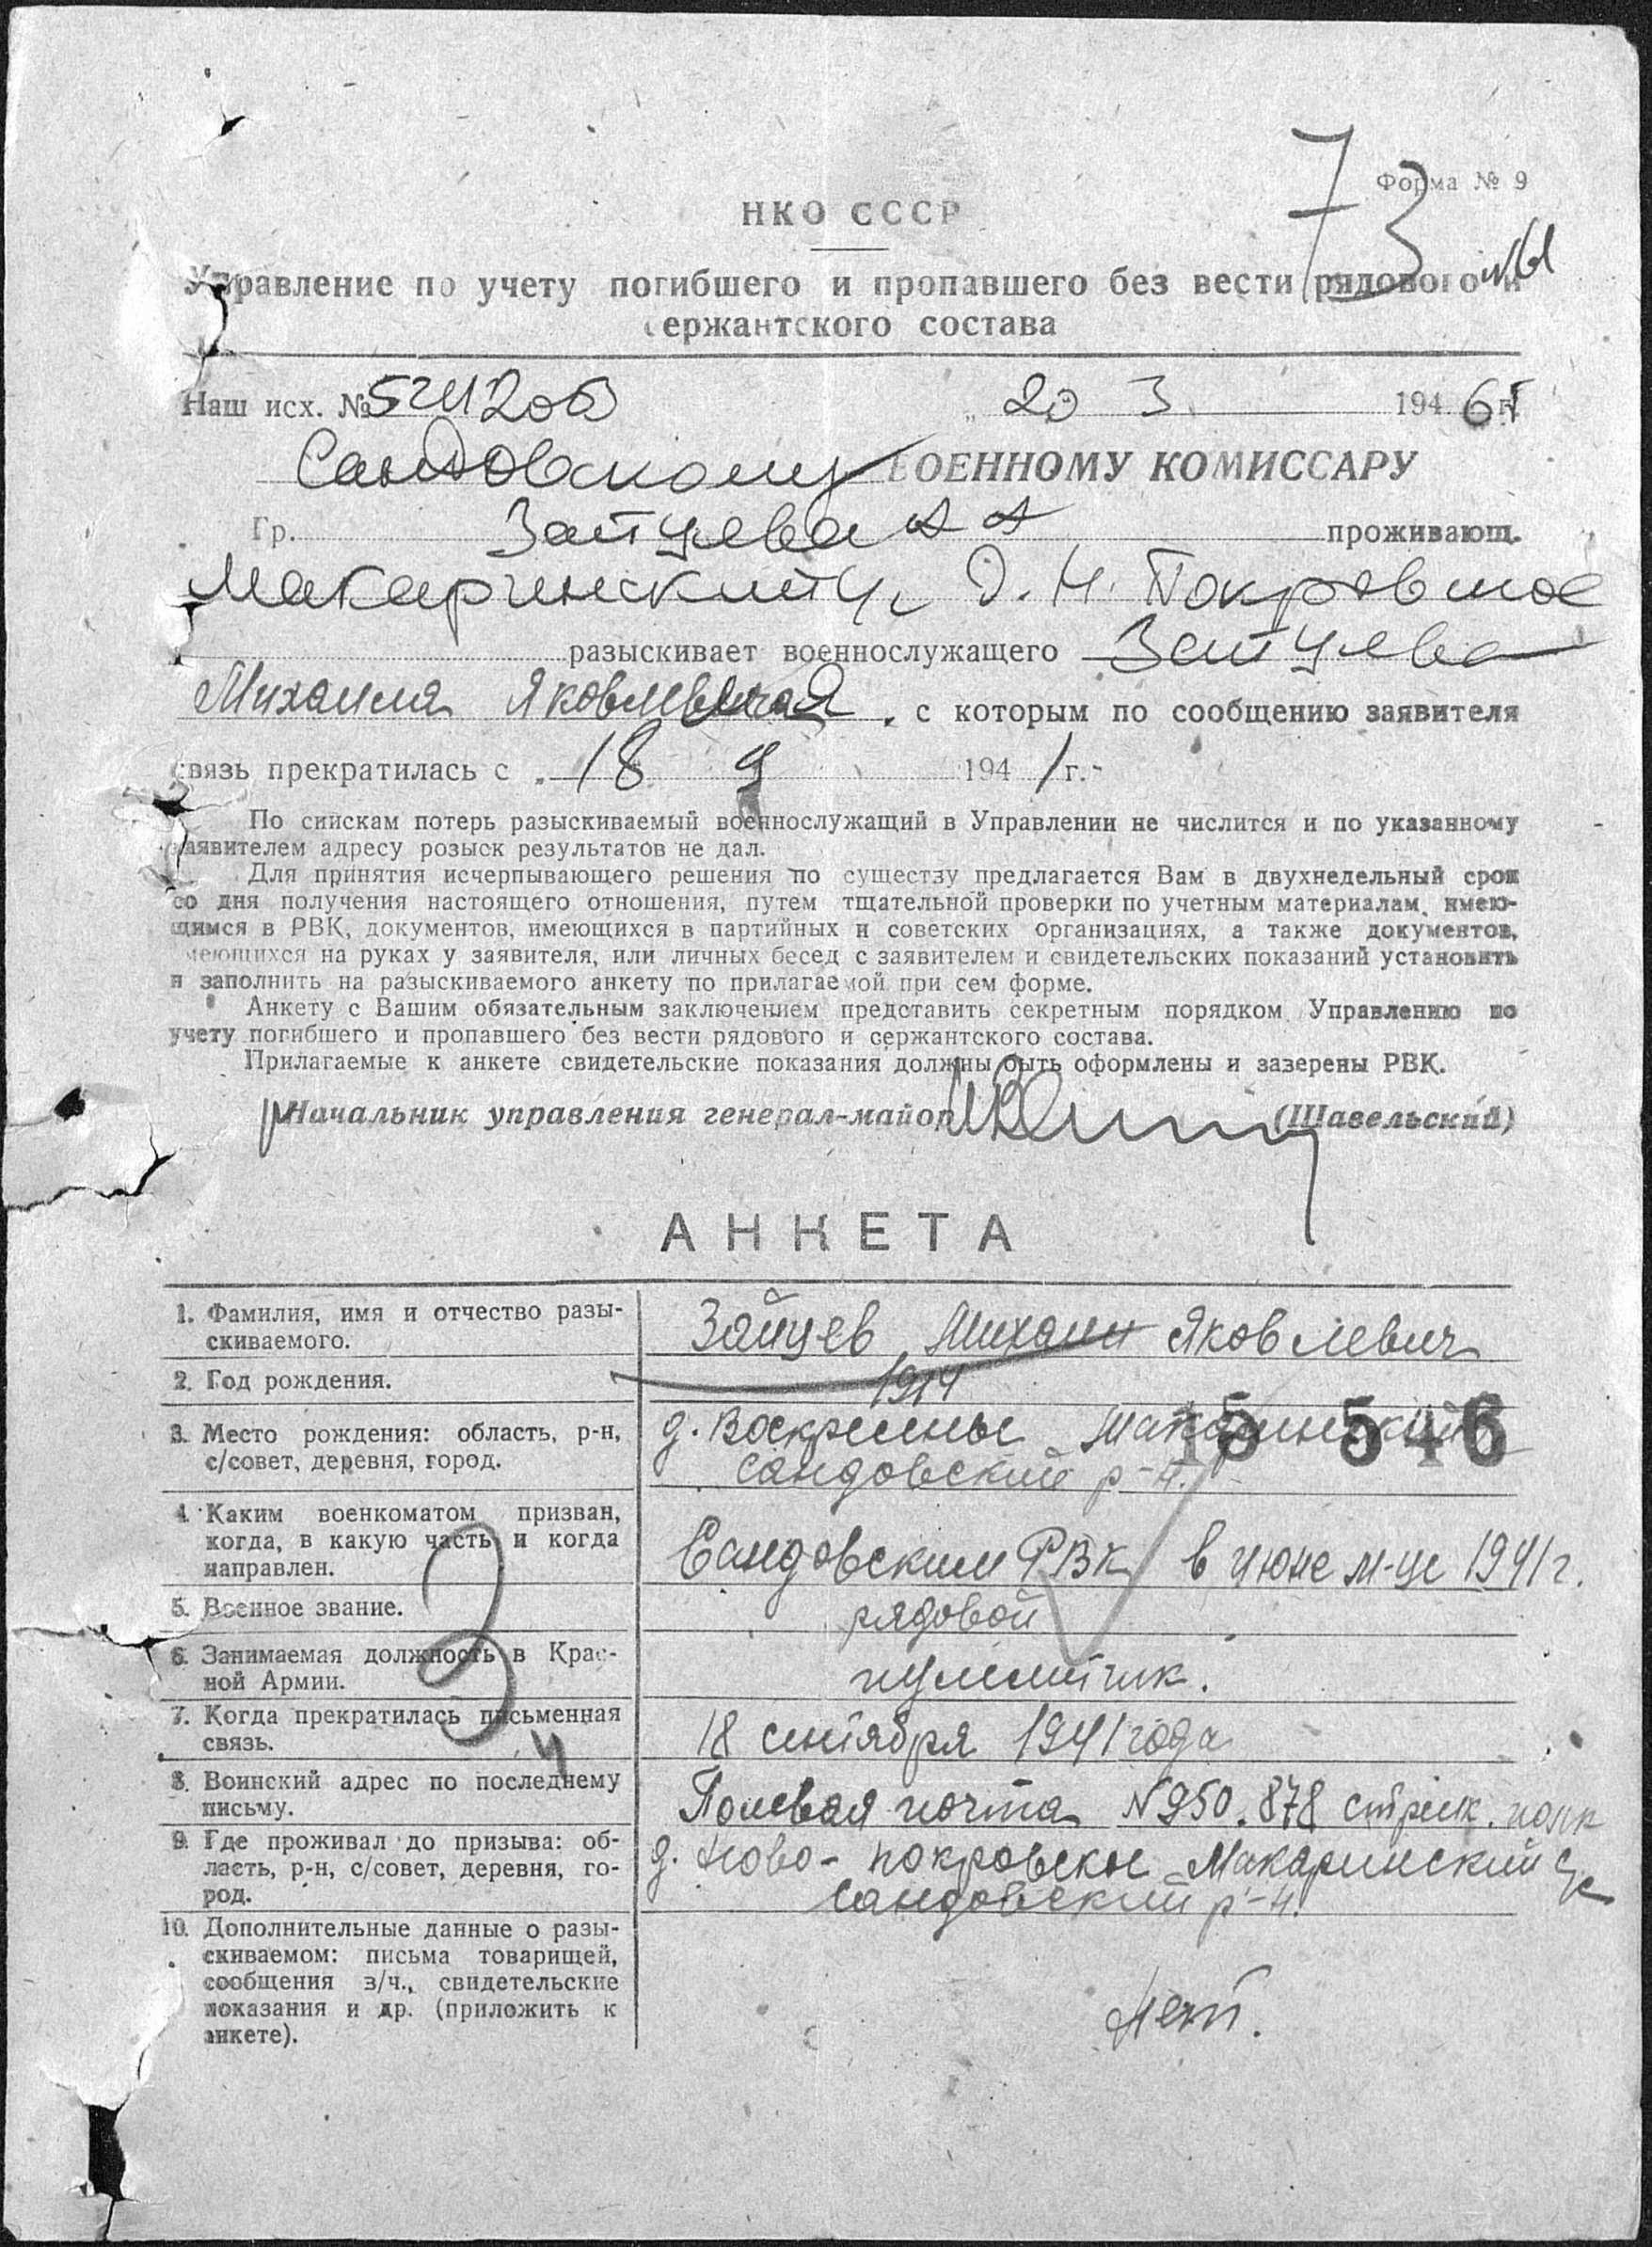 73
Форма № 9
НКО СССР
Управление по учету погибшего и пропавшего без вести рядового и
сержантского состава
Наш исх. № „ 20 3 194 6 г.
Сандовскому ВОЕННОМУ КОМИССАРУ
Гр. Зайцева А А проживающ.
Макаринский с/с, д. Н. Покровское
разыскивает военнослужащего Зайцева
Михаила Яковлевича, с которым по сообщению заявителя
связь прекратилась с „ 18 9 194 1 г.-
По спискам потерь разыскиваемый военнослужащий в Управлении не числится и по указанному
заявителем адресу розыск результатов не дал.
Для принятия исчерпывающего решения по существу предлагается Вам в двухнедельный срок
со дня получения настоящего отношения, путем тщательной проверки по учетным материалам, имею-
щимся в РВК, документов, имеющихся в партийных и советских организациях, а также документов,
имеющихся на руках у заявителя, или личных бесед с заявителем и свидетельских показаний установить
и заполнить на разыскиваемого анкету по прилагаемой при сем форме.
Анкету с Вашим обязательным заключением представить секретным порядком Управлению по
учету погибшего и пропавшего без вести рядового и сержантского состава.
Прилагаемые к анкете свидетельские показания должны быть оформлены и заверены РВК.
Начальник управления генерал-майор (Шавельский)
АНКЕТА
1. Фамилия, имя и отчество разы-
скиваемого.
Зайцев Михаил Яковлевич
2. Год рождения.
1914
3. Место рождения: область, р-н,
с/совет, деревня, город.
д. Воскресенье Макаринский
Сандовский р-н.
15 546
4. Каким военкоматом призван,
когда, в какую часть и когда
направлен.
Сандовским РВК в июне м-це 1941 г.
5. Военное звание.
рядовой
6. Занимаемая должность в Крас-
ной Армии.
пулемётчик.
7. Когда прекратилась письменная
связь.
18 сентября 1941 года
8. Воинский адрес по последнему
письму.
Полевая почта N 950. 878 стрелк. полк
9. Где проживал до призыва: об-
ласть, р-н, с/совет, деревня, го-
род.
д. Ново-покровское Макаринский с/с
Сандовский р-н.
10. Дополнительные данные о разы-
скиваемом: письма товарищей,
сообщения з/ч., свидетельские
показания и др. (приложить к
анкете).
Нет.